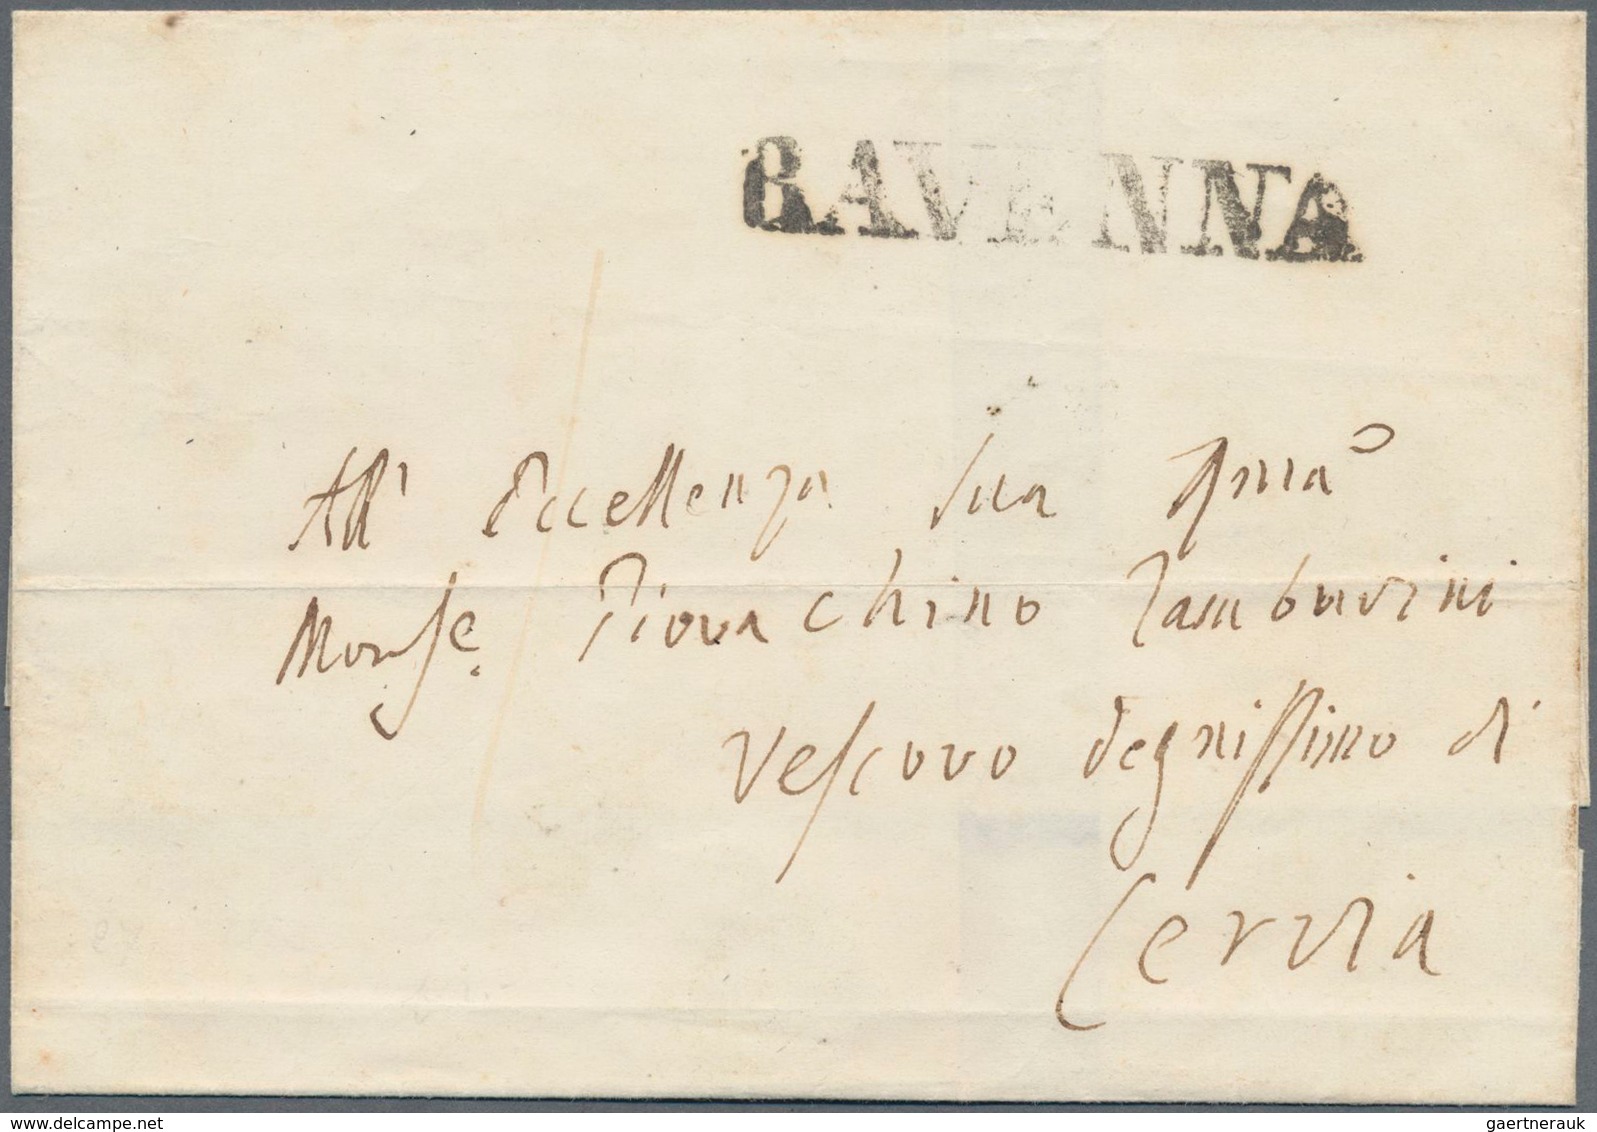 RAVENNA
All' Eccellenza Sua
Monsr. Giovachino Tamburini
Vescovo degnissimo di
Cervia
delcampe.net
gaertnerauk